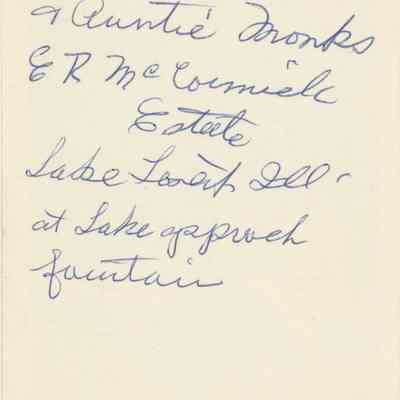 & Auntie Monks
E R McCormick
Estate
Lake Forest Ill-
at Lake approch
fountain